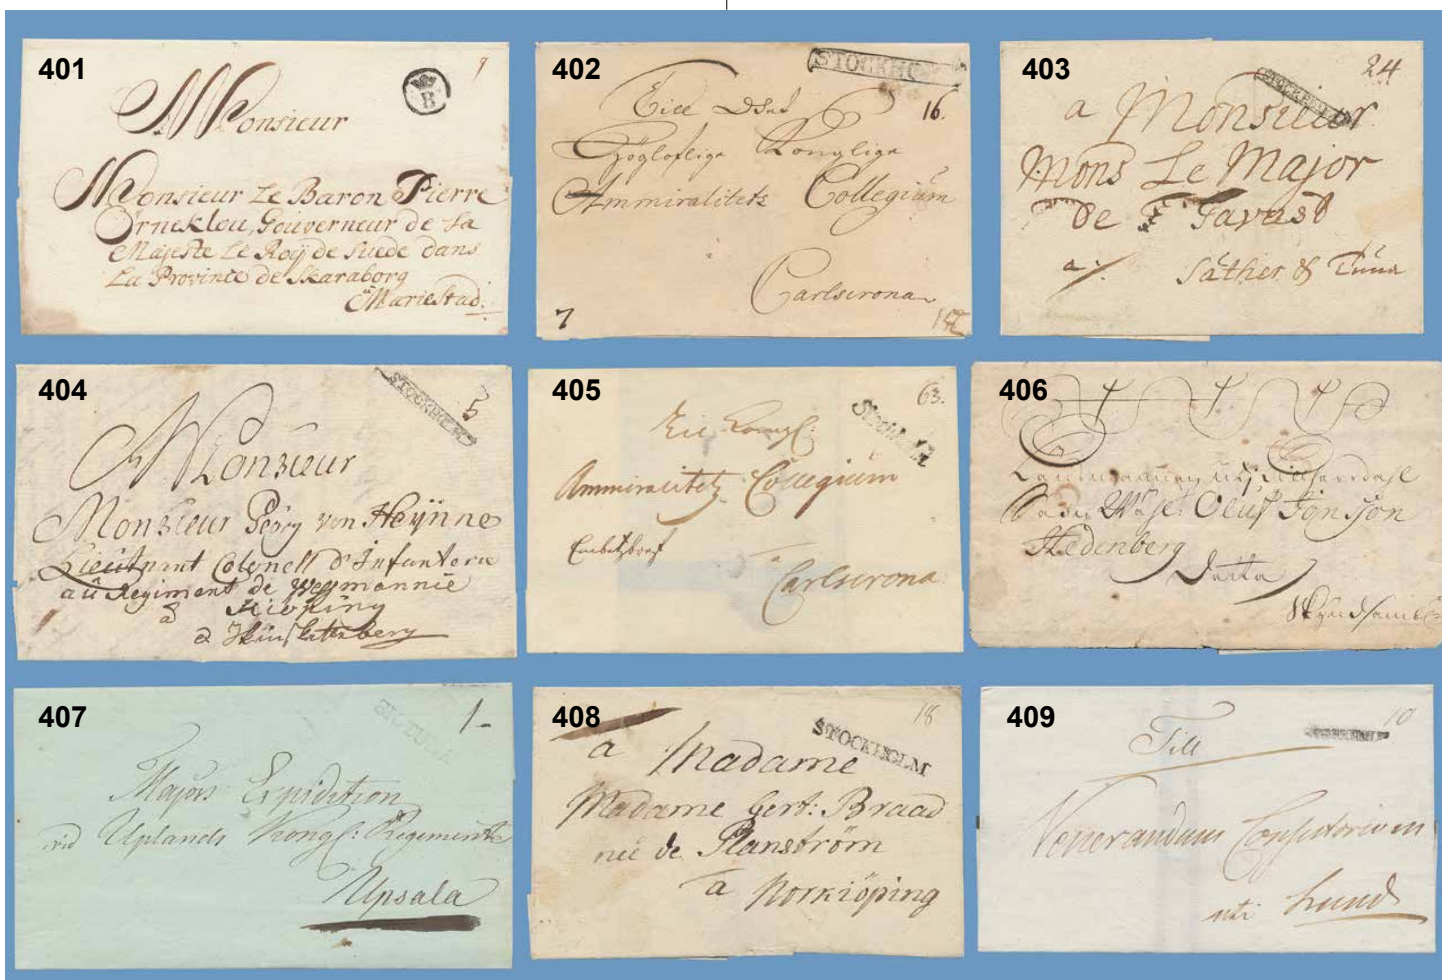 401
B
9
Monsieur
Monsieur Le Baron Pierre
Örneklou, Gouverneur de sa
Majeste Le Roÿ de Suede dans
La Province de Skaraborg
Mariestad.
402
STOCKHOLM
16.
Högloflige Konglige
Ammiralitets Collegium
Carlscrona
7
403
STOCKHOLM
24
a Monsieur
Mons Le Major
De Tavast
a: Säther & Tuna
404
STOCKHOLM
5
Monsieur
Monsieur Georg von Heÿnne
Lieutnant Colonell d'Infanterie
au Regiment de Wesmannie
à Kiöping
405
Stockholm
63.
Ammiralitetz Collegium
Embetzbref
à
Carlscrona
406
Oluf Jönsson
Hedenberg
Detta
407
1-
Majors Expidition
vid Uplands Kongl: Regemente
Upsala
408
STOCKHOLM
18
a Madame
Madame Gert: Braad
neé de Planström
a Norkiöping
409
10
Till
Venerandum Consistorium
uti Lund